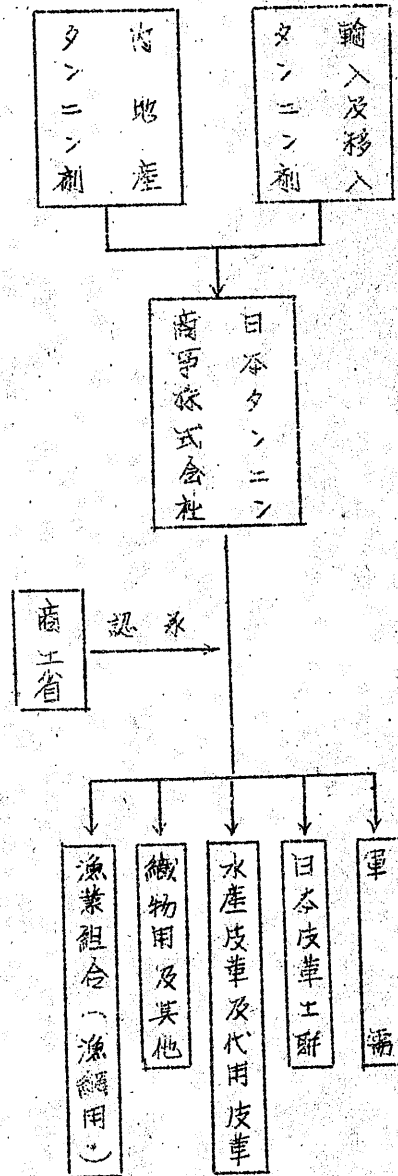 輸入及移入
タンニン剤
内地産
タンニン剤
日本タンニン
商事株式会社
商工省
認承
軍需
日本皮革工聯
水産皮革及代用皮革
織物用及其他
漁業組合(漁網用)